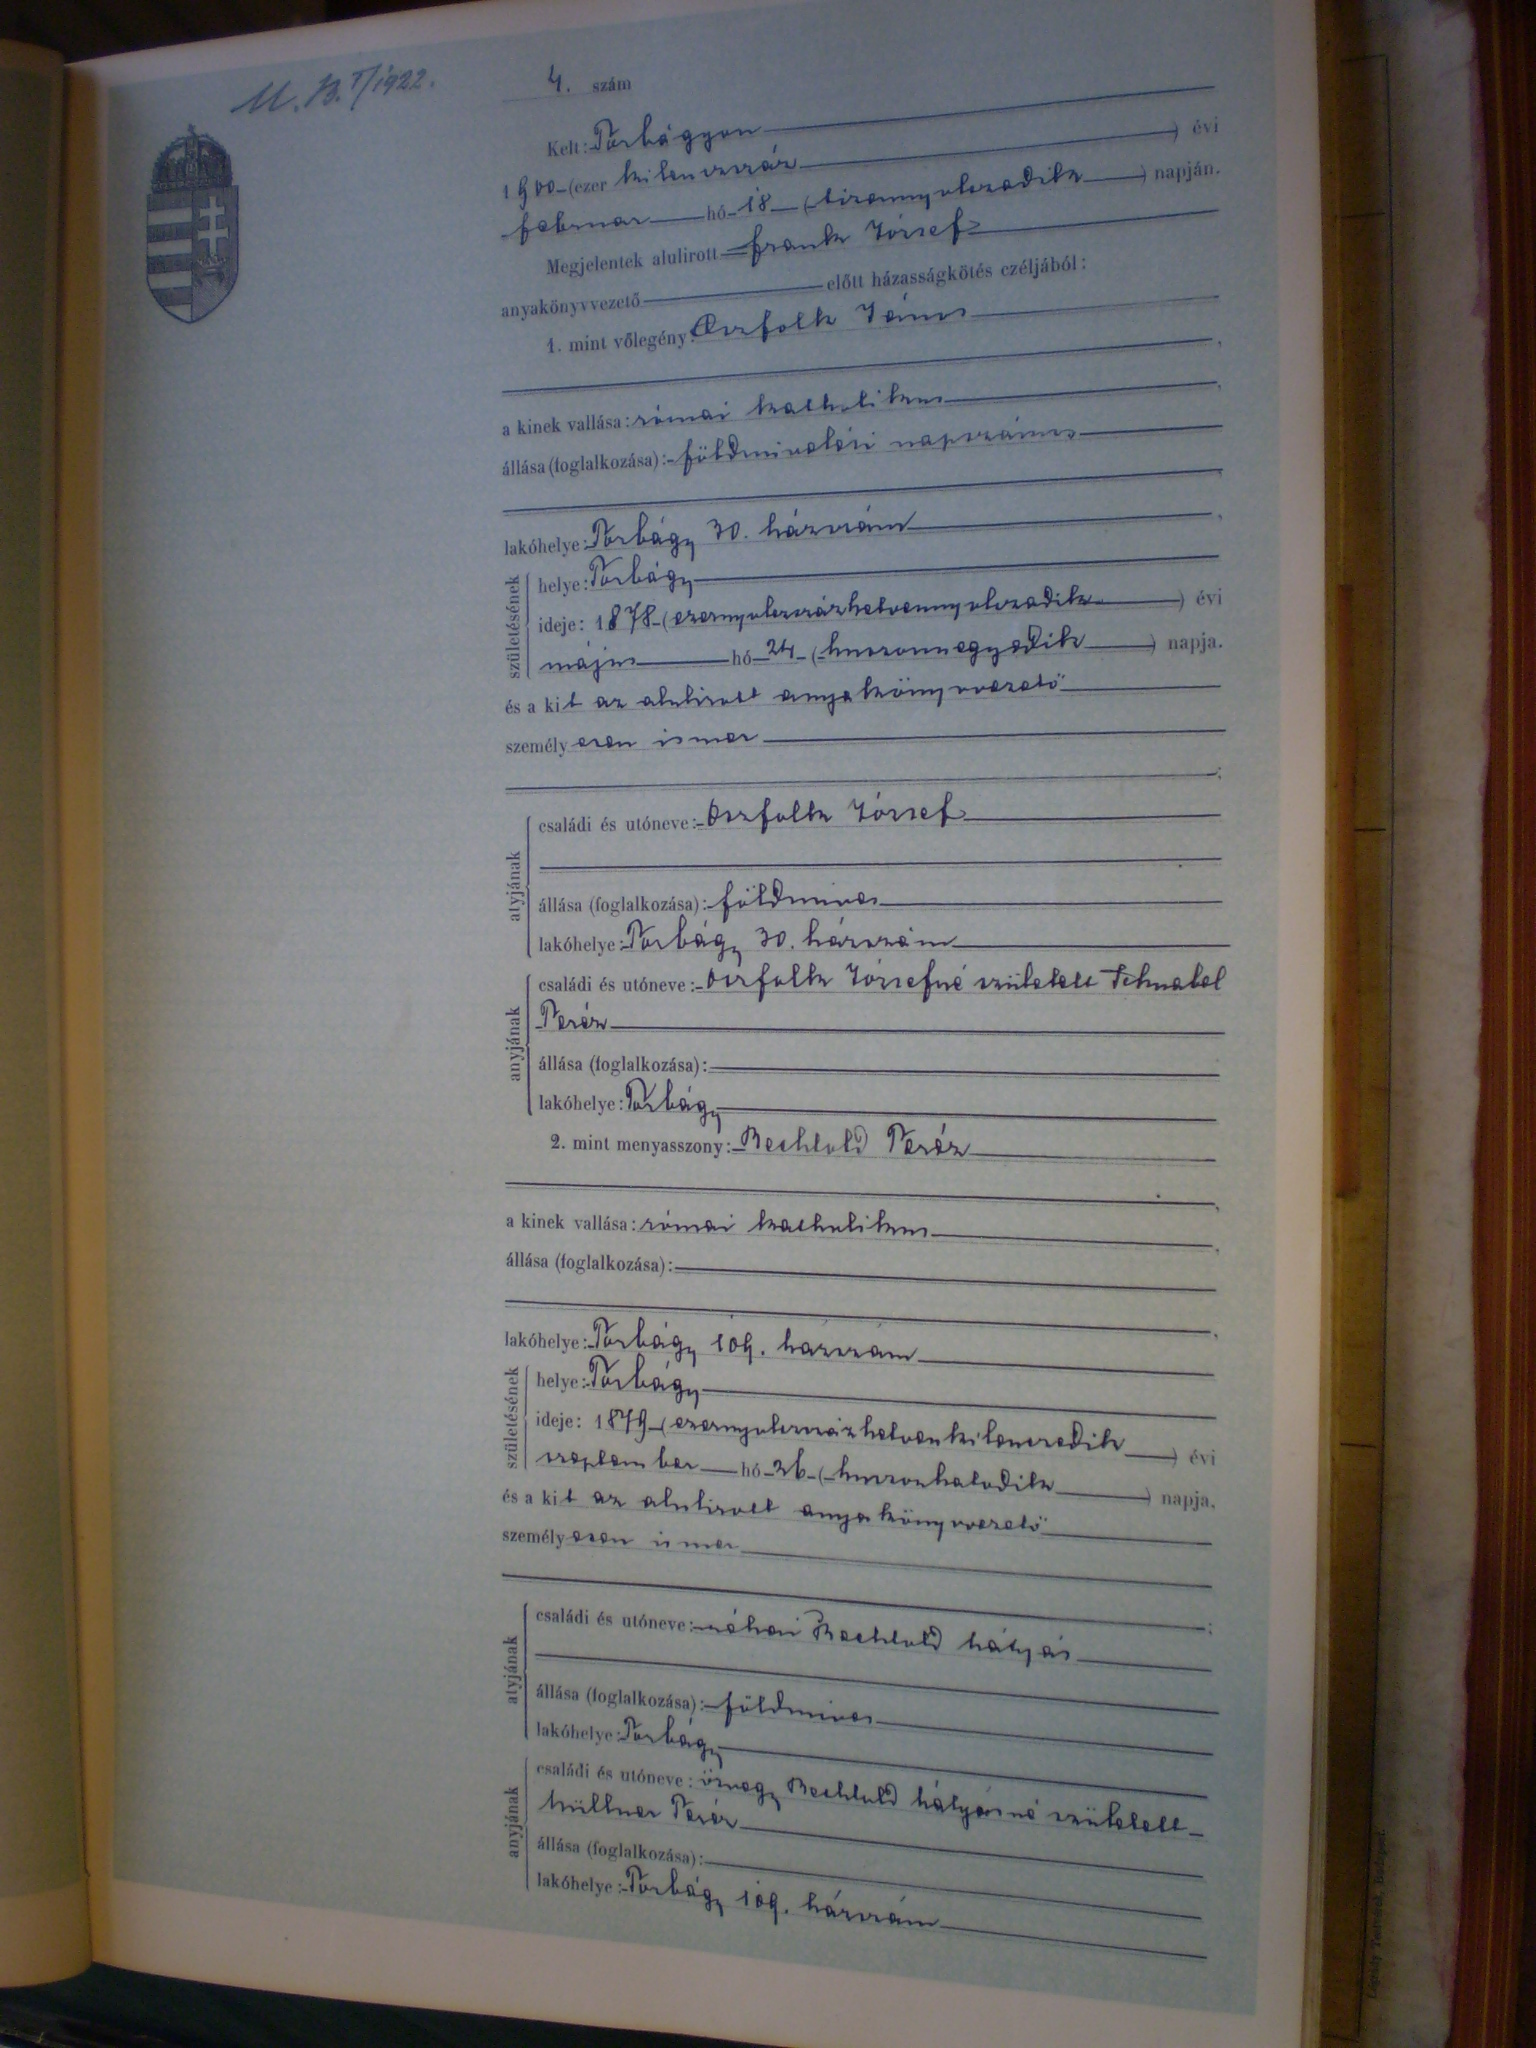 M. B. I/1922.
4. szám
Kelt: Torbágyon
1900 (ezer kilenczszáz) évi
február hó 18 (tizennyolczadik) napján.
Megjelentek alulirott Frank József
anyakönyvvezető előtt házasságkötés czéljából:
1. mint vőlegény: Oszfolk János
a kinek vallása: római katholikus,
állása (foglalkozása): földmivelési napszámos
lakóhelye: Torbágy 30. házszám,
születésének
helye: Torbágy
ideje: 1878 (ezernyolczszázhetvennyolczadik) évi
május hó 24 (huszonnegyedik) napja.
és a kit az alulirott anyakönyvvezető
személyesen ismer;
atyjának
családi és utóneve: Oszfolk József
állása (foglalkozása): földmives
lakóhelye: Torbágy 30. házszám
anyjának
családi és utóneve: Oszfolk Józsefné született Schnabel
Teréz
állása (foglalkozása):
lakóhelye: Torbágy
2. mint menyasszony: Bechtold Teréz,
a kinek vallása: római katholikus,
állása (foglalkozása):
lakóhelye: Torbágy 109. házszám
születésének
helye: Torbágy
ideje: 1879 (ezernyolczszázhetvenkilenczedik) évi
szeptember hó 26 (huszonhatodik) napja,
és a kit az alulirott anyakönyvvezető
személyesen ismer;
atyjának
családi és utóneve: néhai Bechtold Mátyás
állása (foglalkozása): földmives
lakóhelye: Torbágy
anyjának
családi és utóneve: özvegy Bechtold Mátyásné született
Müllner Teréz
állása (foglalkozása):
lakóhelye: Torbágy 109. házszám